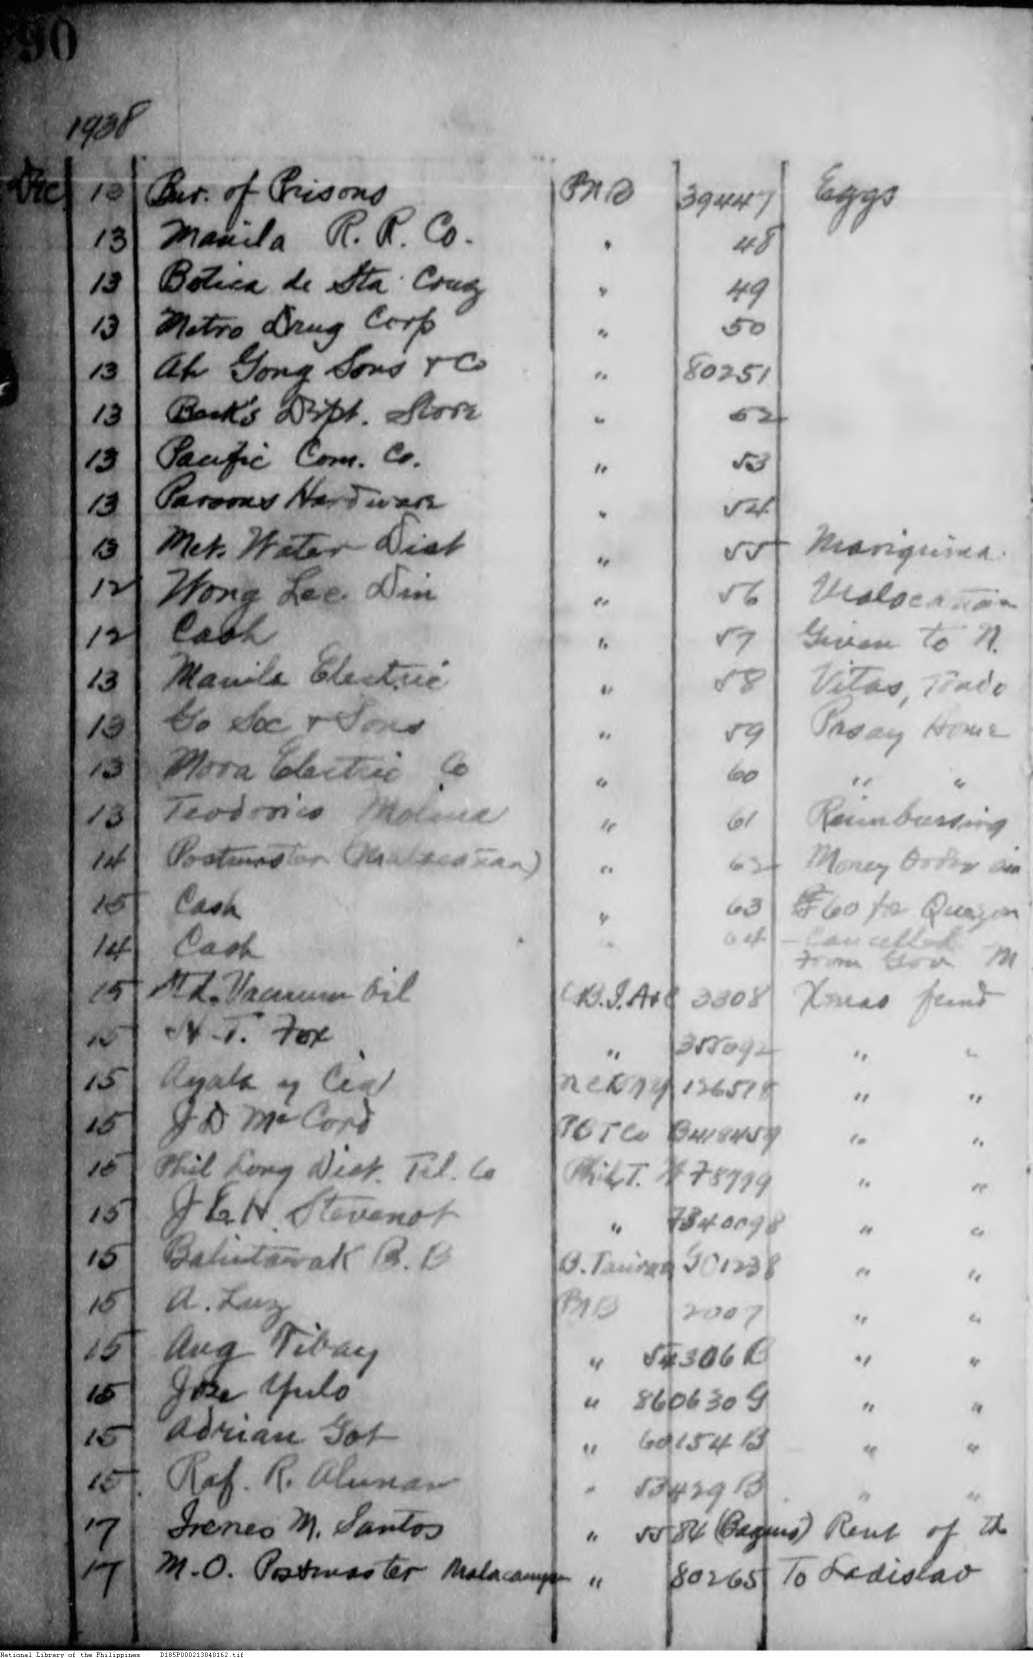 90
1938
Dec 13 Bur. of Prisons PNB 39447 Eggs
13 Manila R. R. Co. " 48
13 Botica de Sta Cruz " 49
13 Metro Drug Corp " 50
13 Ah Gong Sons & Co " 80251
13 Beck's Dept. Store " 52
13 Pacific Com. Co. " 53
13 Parsons Hardware " 54
13 Met. Water Dist " 55 Mariquina
12 Wong Lee Din " 56 Malacañan
12 Cash " 57 Given to N.
13 Manila Electric " 58 Vitas, Tondo
13 Go Soc & Sons " 59 Pasay Home
13 Mora Electric Co " 60 " "
13 Teodorico Molina " 61 Reimbursing
14 Postmaster (Malacañan) " 62 Money Order in
15 Cash " 63 ₱60 for Quezon
14 Cash " 64 - Cancelled
from Gov M
15 Std. Vacuum Oil C.B.I.A&C 3308 Xmas fund
15 H. T. Fox " 355092 " "
15 Ayala y Cia NCBNY 126518 " "
15 J D McCord PBTCo B418459 " "
15 Phil Long Dist. Tel. Co Phil.T. # 78779 " "
15 J E H Stevenot " 7340098 " "
15 Balintawak B. B B. Taiwan G01238 " "
15 A. Luz PNB 2007 " "
15 Aug Tibay " 54306 B " "
15 Jose Yulo " 860630 G " "
15 Adrian Got " 60154 B " "
15 Raf. R. Alunan " 53429 B " "
17 Ireneo M. Santos " 5586 (Baguio) Rent of th
17 M.O. Postmaster Malacañan " 80265 To Ladislao
National Library of the Philippines D185P000213040162.tif